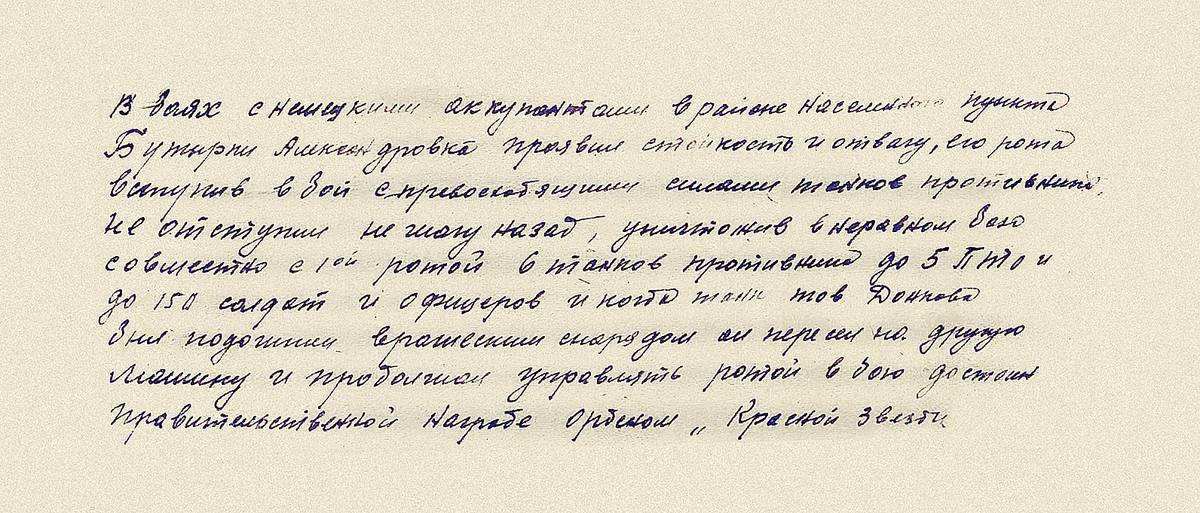 В боях с немецкими аккупантами в районе населенного пункта
Бутырки Александровка проявил стойкость и отвагу, его рота
вступив в бой с превосходящими силами танков противника,
не отступил не шагу назад, уничтожив в неравном бою
совместно с 1ой ротой 6 танков противника до 5 ПТО и
до 150 солдат и офицеров и когда танк тов
был подбит вражеским снарядом он пересел на другую
машину и продолжал управлять ротой в бою достоин
Правительственной награде орденом „ Красной Звезды